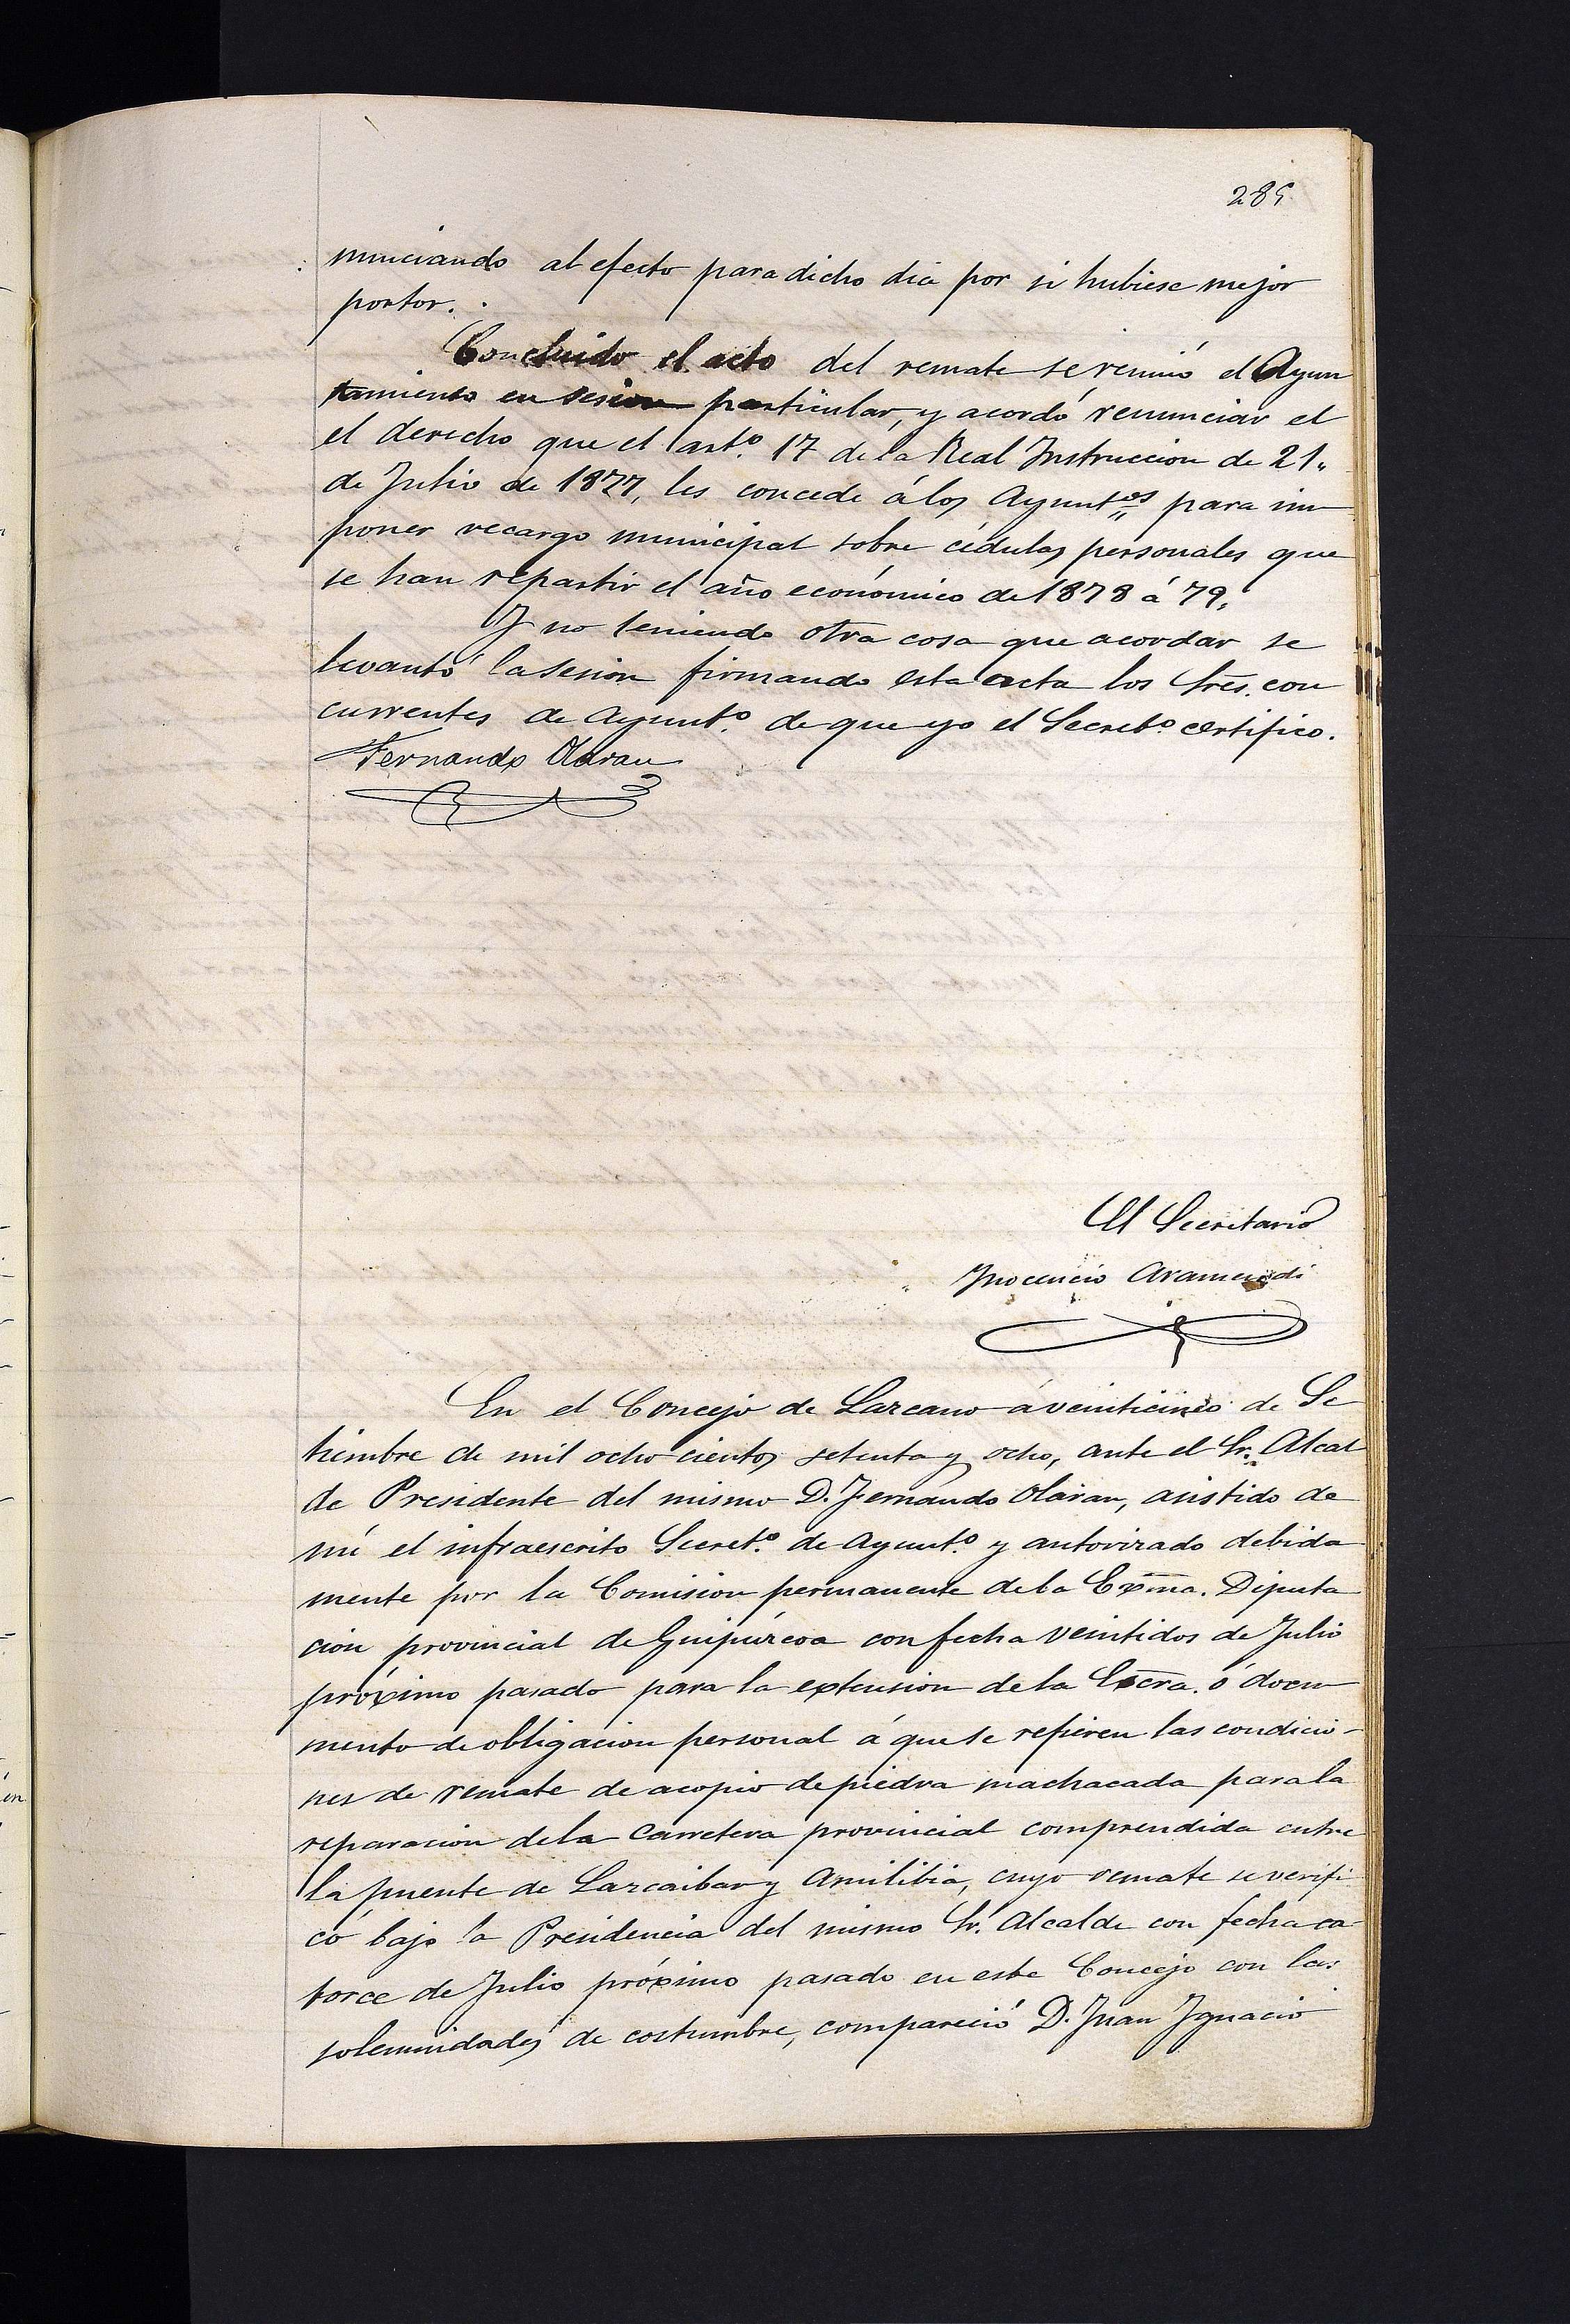 285
nunciando al efecto para dicho dia por si hubiese mejor
portor.
Concluido el acto del remate se reunió el Ayun
tamiento en sesion particular, y acordó renunciar el
el derecho que el art.º 17 de la Real Instruccion de 21"
de Julio de 1877, les concede á los Ayunt.os para im
poner recargo municipal sobre cédulas personales que
se han repartir el año económico de 1878 á 79.
Y no teniendo otra cosa que acordar se
levantó la sesion firmando esta acta los Sres. con
currentes de Ayunt.º de que yo el Secret.º certifico.
Fernando Olaran
El Secretario
Inocencio Aramendi
En el Concejo de Lazcano á veinticinco de Se
tiembre de mil ocho cientos setenta y ocho, ante el Sr. Alcal
de Presidente del mismo D. Fernando Olaran, asistido de
mí el infraescrito Secret.º de Ayunt.º y autorizado debida
mente por la Comision permanente de la Exma. Diputa
cion provincial de Guipúzcoa con fecha veintidos de Julio
próximo pasado para la extension de la Escra. ó docu
mento de obligacion personal á que se refieren las condicio-
nes de remate de acopio de piedra machacada para la
reparacion de la carretera provincial comprendida entre
la puente de Lazcaibar y Amilibia, cuyo remate se verifi
có bajo la Presidencia del mismo Sr. Alcalde con fecha ca
torce de Julio próximo pasado en este Concejo con las
solemnidades de costumbre, compareció D. Juan Ignacio